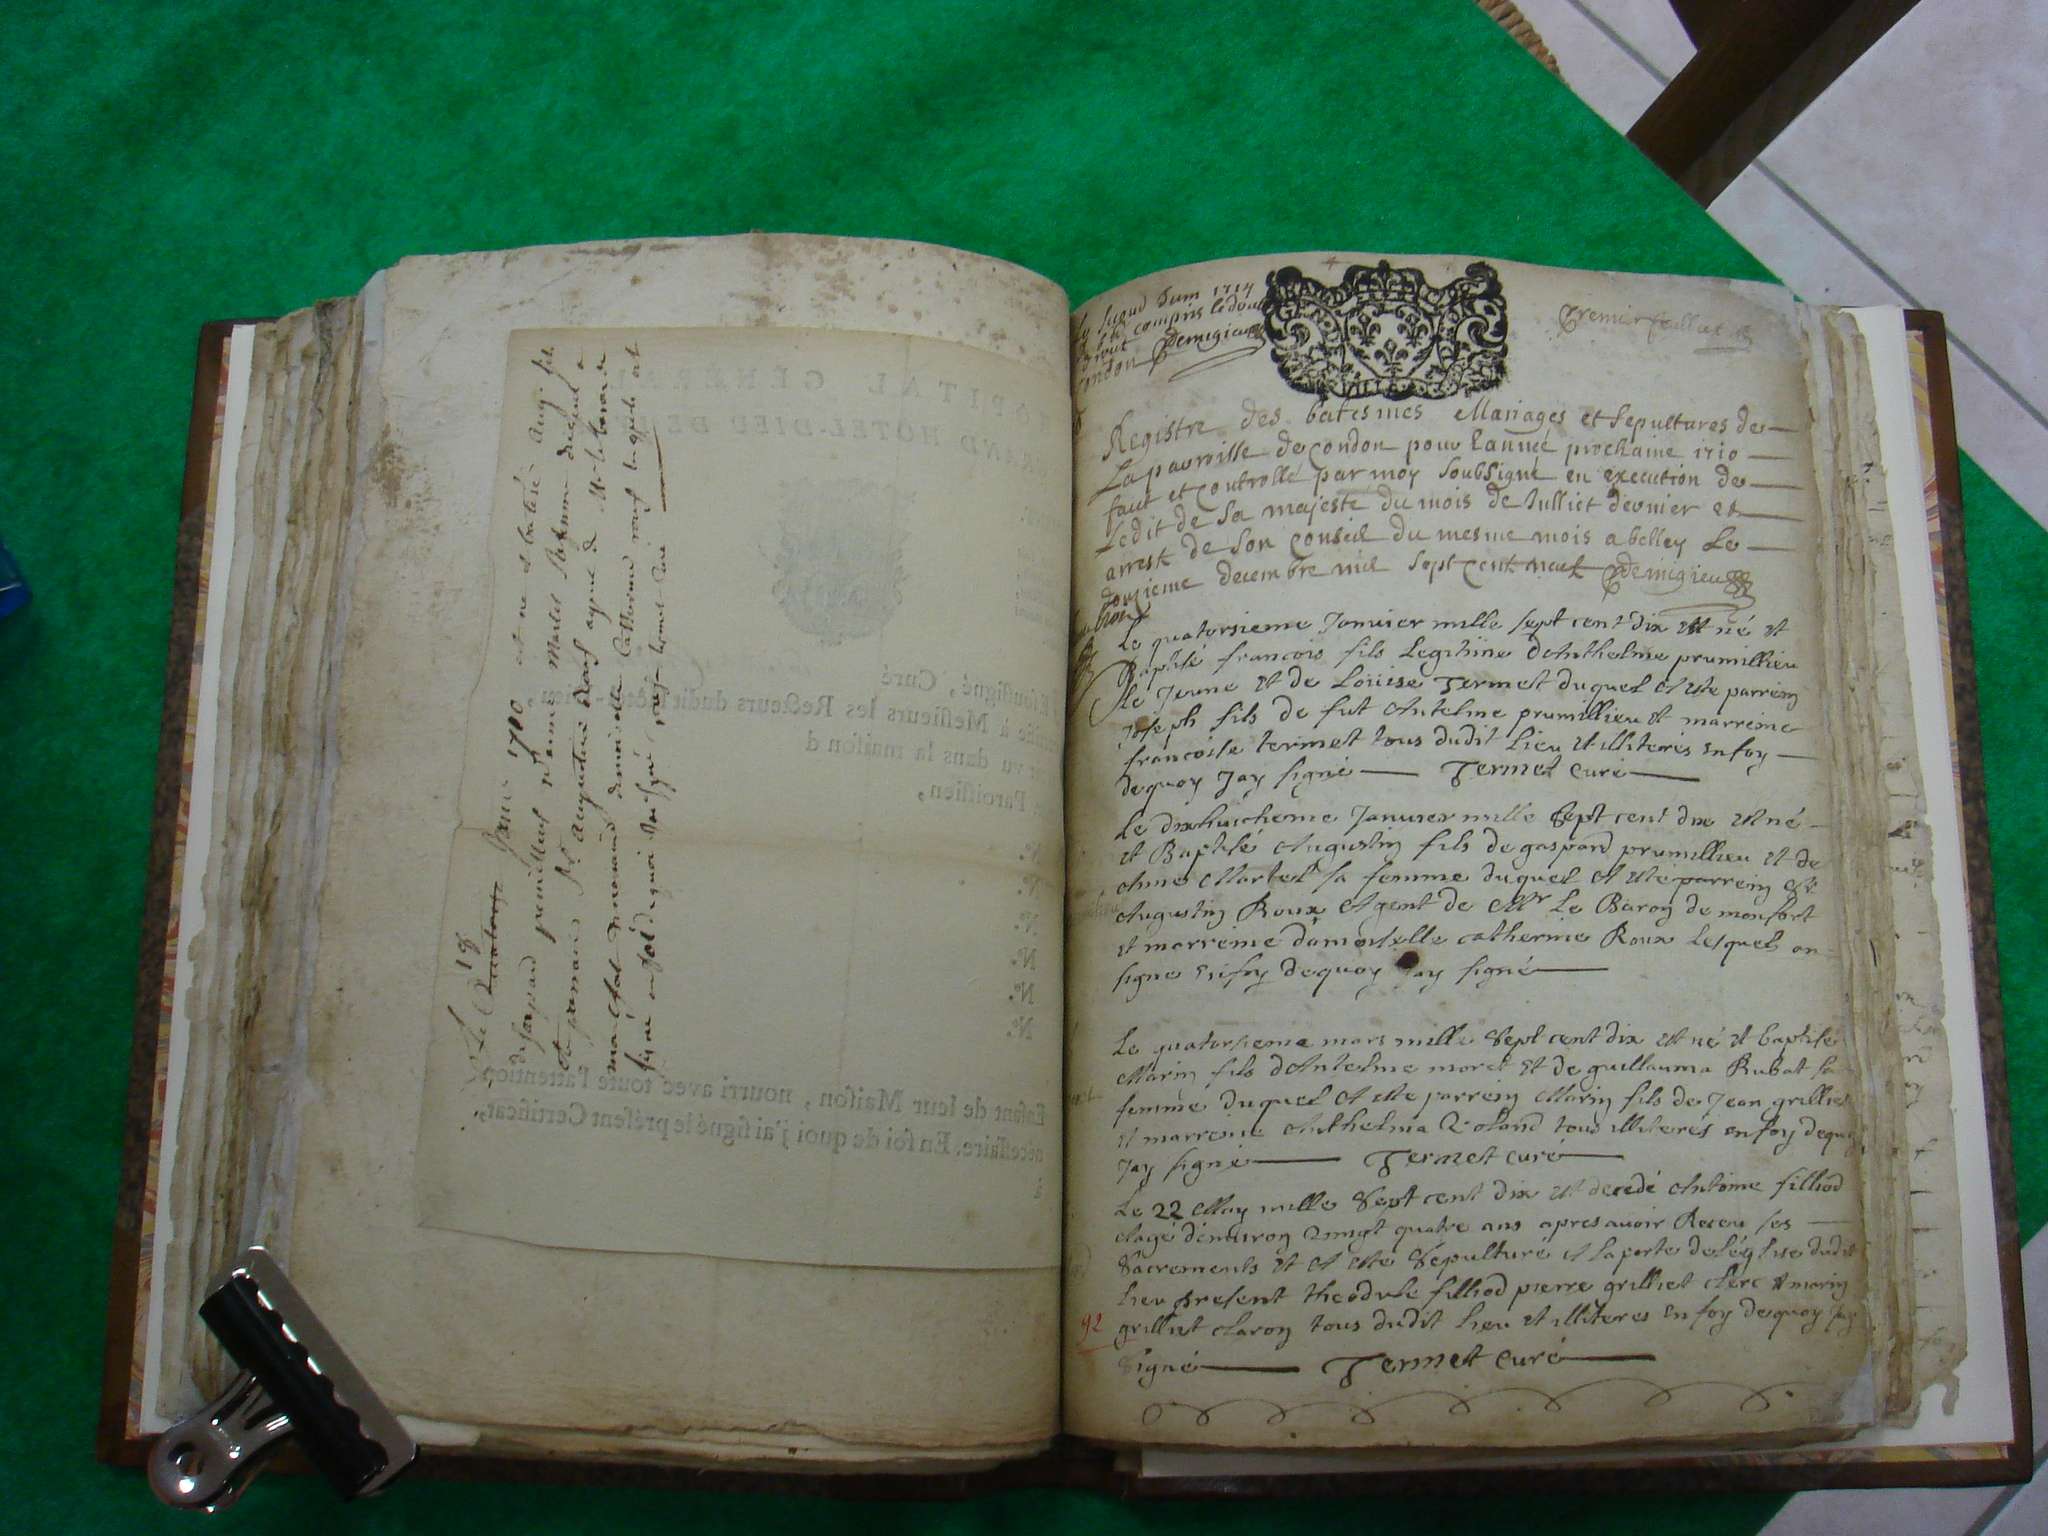 18
Le Quatorze Janv 1710 est né et batisé Aug. fils
de gaspard prumillieu et anne martel sa femme duquel a
eté parrain Sr. augustin Roux agent de Mr. le baron de
monfort marraine demoiselle Catherine roux laquelle ont
signé en foi de quoi j'ai signé
HÔPITAL GÉNÉRAL
GRAND HÔTEL-DIEU DE
JE soussigné, Curé
certifie à Messieurs les Recteurs dudit Hôtel-Dieu,
vu dans la maison d
Paroissien,
N°.
N°.
N°.
N°.
N°.
N°.
Enfant de leur Maison, nourri avec toute l'attention
nécessaire. En foi de quoi j'ai signé le présent Certificat,
à
juin 1714
compris le double
condon Demigieu
GRAND ET PETIT
GEN
VILLE
Premier feuillet
Registre des batesmes Mariages et sepultures de
La parroisse de Condon pour l'année prochaine 1710
faut et controllé par moy soubsigné en execution de
Ledit de Sa majesté du mois de Julliet dernier et
arrest de son Conseil du mesme mois a belley Le
douzieme decembre mil sept cent neuf Demigieu
Le quatorsieme Janvier mille sept cent dix est né et
Baptisé francois fils Legitiine d'Anthelme prumillieu
Le Jeune et de Louise Termet duquel a este parrein
Joseph fils de fut Antelme prumillieu et marreine
francoise termet tous dudit lieu et illiteres en foy
de quoy Jay signé Termet curé
Le dixhuictieme Janvier mille sept cent dix est né
et Baptisé Augustin fils de gaspard prumillieu et de
Anne Martel sa femme duquel a este parrein Sr
Augustin Roux Agent de Mr Le Baron de monfort
et marreine damoiselle catherine Roux lesquels on
signe en foy de quoy Jay signé
Le quatorsieme mars mille sept cent dix est né et baptisé
Marin fils d'Antelme moret et de guillauma Rubat sa
femme duquel a este parrein Marin fils de Jean grilliet
et marreine Anthelma Roland tous illiteres en foy de quoy
Jay signé Termet curé
Le 22 May mille sept cent dix est decedé Antoine filliod
Aagé d'environ vingt quatre ans apres avoir Receu ses
Sacrements et a este sepulturé a la porte de l'église dudit
lieu present theodule filliod pierre grilliet clerc et marin
92
grilliet claron tous dudit lieu et illiteres en foy de quoy Jay
signé Termet curé